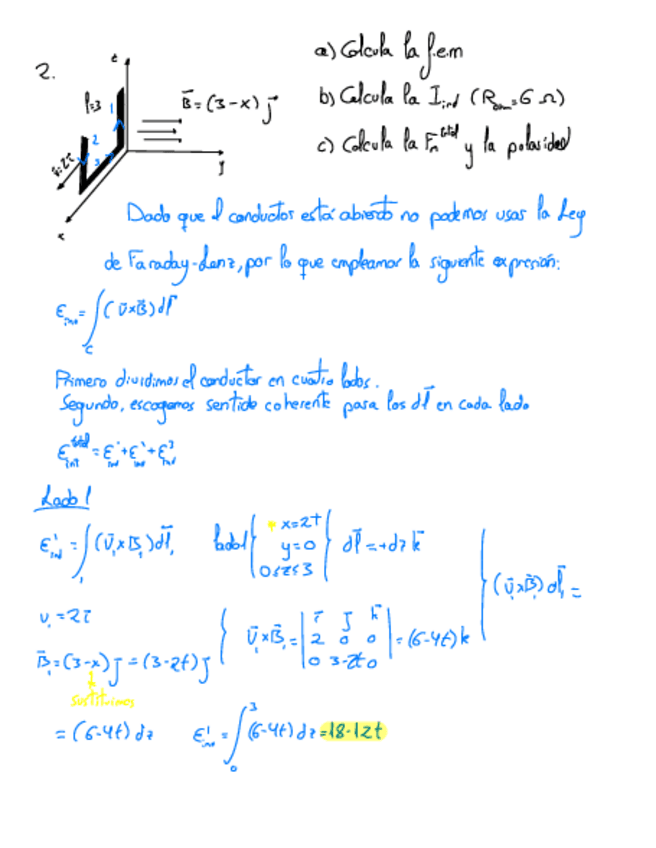 2.
z
l=3
1
2
3
v=2ī
x
y
B̄=(3-x) j̄
a) Calcula la f.e.m
b) Calcula la I_ind (R_con=6 Ω)
c) Calcula la F_m^total y la polaridad
Dado que el conductor está abierto no podemos usar la Ley
de Faraday-Lenz, por lo que empleamos la siguiente expresión:
ε_ind = ∫_C (v̄xB̄)dl̄
Primero dividimos el conductor en cuatro lados.
Segundo, escogemos sentido coherente para los dl̄ en cada lado
ε_int^total = ε_ind^1 + ε_ind^2 + ε_ind^3
Lado 1
ε_ind^1 = ∫_1 (v̄₁xB̄₁)dl̄₁ lado1 { x=2t y=0 0≤z≤3 } dl̄=+dz k̄
v₁=2ī
B̄₁=(3-x)j̄=(3-2t)j̄
sustituimos
v̄₁xB̄₁= | ī j̄ k̄ 2 0 0 0 3-2t 0 | =(6-4t)k̄
(v̄₁xB̄₁)dl̄₁=
=(6-4t)dz ε_ind^1 = ∫_0^3 (6-4t)dz=18-12t